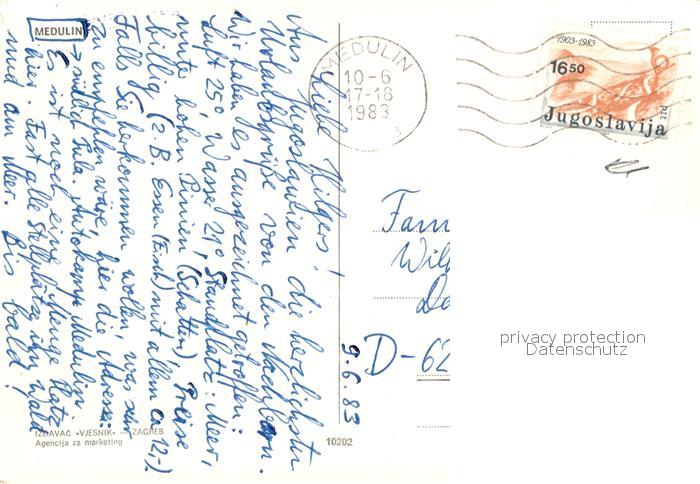 MEDULIN
Liebe Hilgers!
Aus Jugoslawien die herzlichsten
Urlaubsgrüße von den Nachbarn.
Wir haben es ausgezeichnet getroffen:
Luft 25°, Wasser 21°, Standplatz: Meer,
hohen Pinien (Schatten) Preise
billig (z.B. Essen (Fisch) mit allem ca 12,-).
Falls Sie herkommen wollen, was sehr
zu empfehlen wäre, hier die Adresse:
→ südlich Pula, Autokamp Medulin.
Es ist noch eine Menge Platz
hier. Fast alle Stellplätze im Wald
und am Meer. Bis bald!
9.6.83
IZDAVAČ «VJESNIK» — ZAGREB
Agencija za marketing
10202
MEDULIN
10-6
17-18
1983
1903-1983
16 50
Jugoslavija
ptt
Fam
D-62
privacy protection
Datenschutz